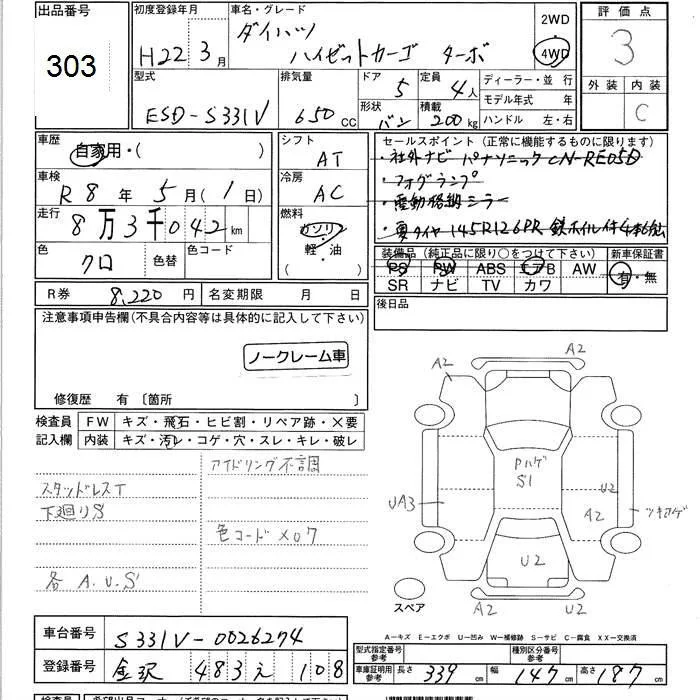 出品番号 303
初度登録年月 H22 3月
車名・グレード ダイハツ ハイゼットカーゴ ターボ
2WD
4WD
評価点 3
外装 内装 C
型式 EBD-S331V
排気量 650 CC
ドア 5
定員 4人
形状 バン
積載 200 kg
ディーラー・並行
モデル年式 年
ハンドル 左・右
車歴 自家用・( )
車検 R8年 5月(1日)
走行 8万3千042 km
色 クロ 色替 色コード
シフト AT
冷房 AC
燃料 ガソリン 軽・油 ( )
セールスポイント(正常に機能するものに限ります)
・社外ナビ パナソニック CN-RE05D
・フォグランプ
・電動格納ミラー
・夏タイヤ 145R12 6PR 鉄ホイル付4本
装備品(純正品に限り○をつけて下さい)
PS PW ABS エアB AW
SR ナビ TV カワ
新車保証書 有・無
後日品
R券 8,220円 名変期限 月 日
注意事項申告欄(不具合内容等は具体的に記入して下さい)
ノークレーム車
修復歴 有〔箇所 〕
検査員 FW キズ・飛石・ヒビ割・リペア跡・X要
記入欄 内装 キズ・汚レ・コゲ・穴・スレ・キレ・破レ
アイドリング不調
スタッドレスT
下廻りS
色コード X07
各 A.U.S
A2
A2
PハゲS1
U2
UA3
A2
ツキアゲ
U2
A2
U2
スペア
車台番号 S331V-0026274
登録番号 金沢 483 え 108
A-キズ E-エクボ U-凹み W-補修跡 S-サビ C-腐食 XX-交換済
型式指定番号 参考
種別区分番号 参考
車庫証明用 参考 長さ 339 cm 幅 147 cm 高さ 187 cm